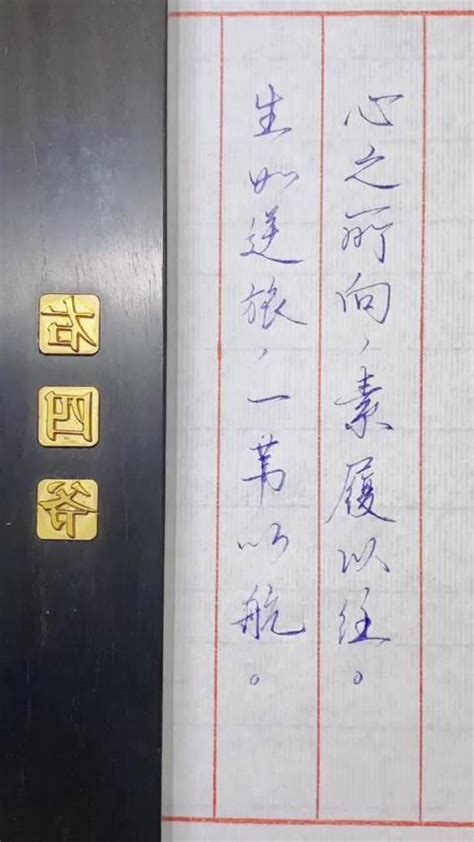 心之所向，素履以往。
生如逆旅，一苇以航。